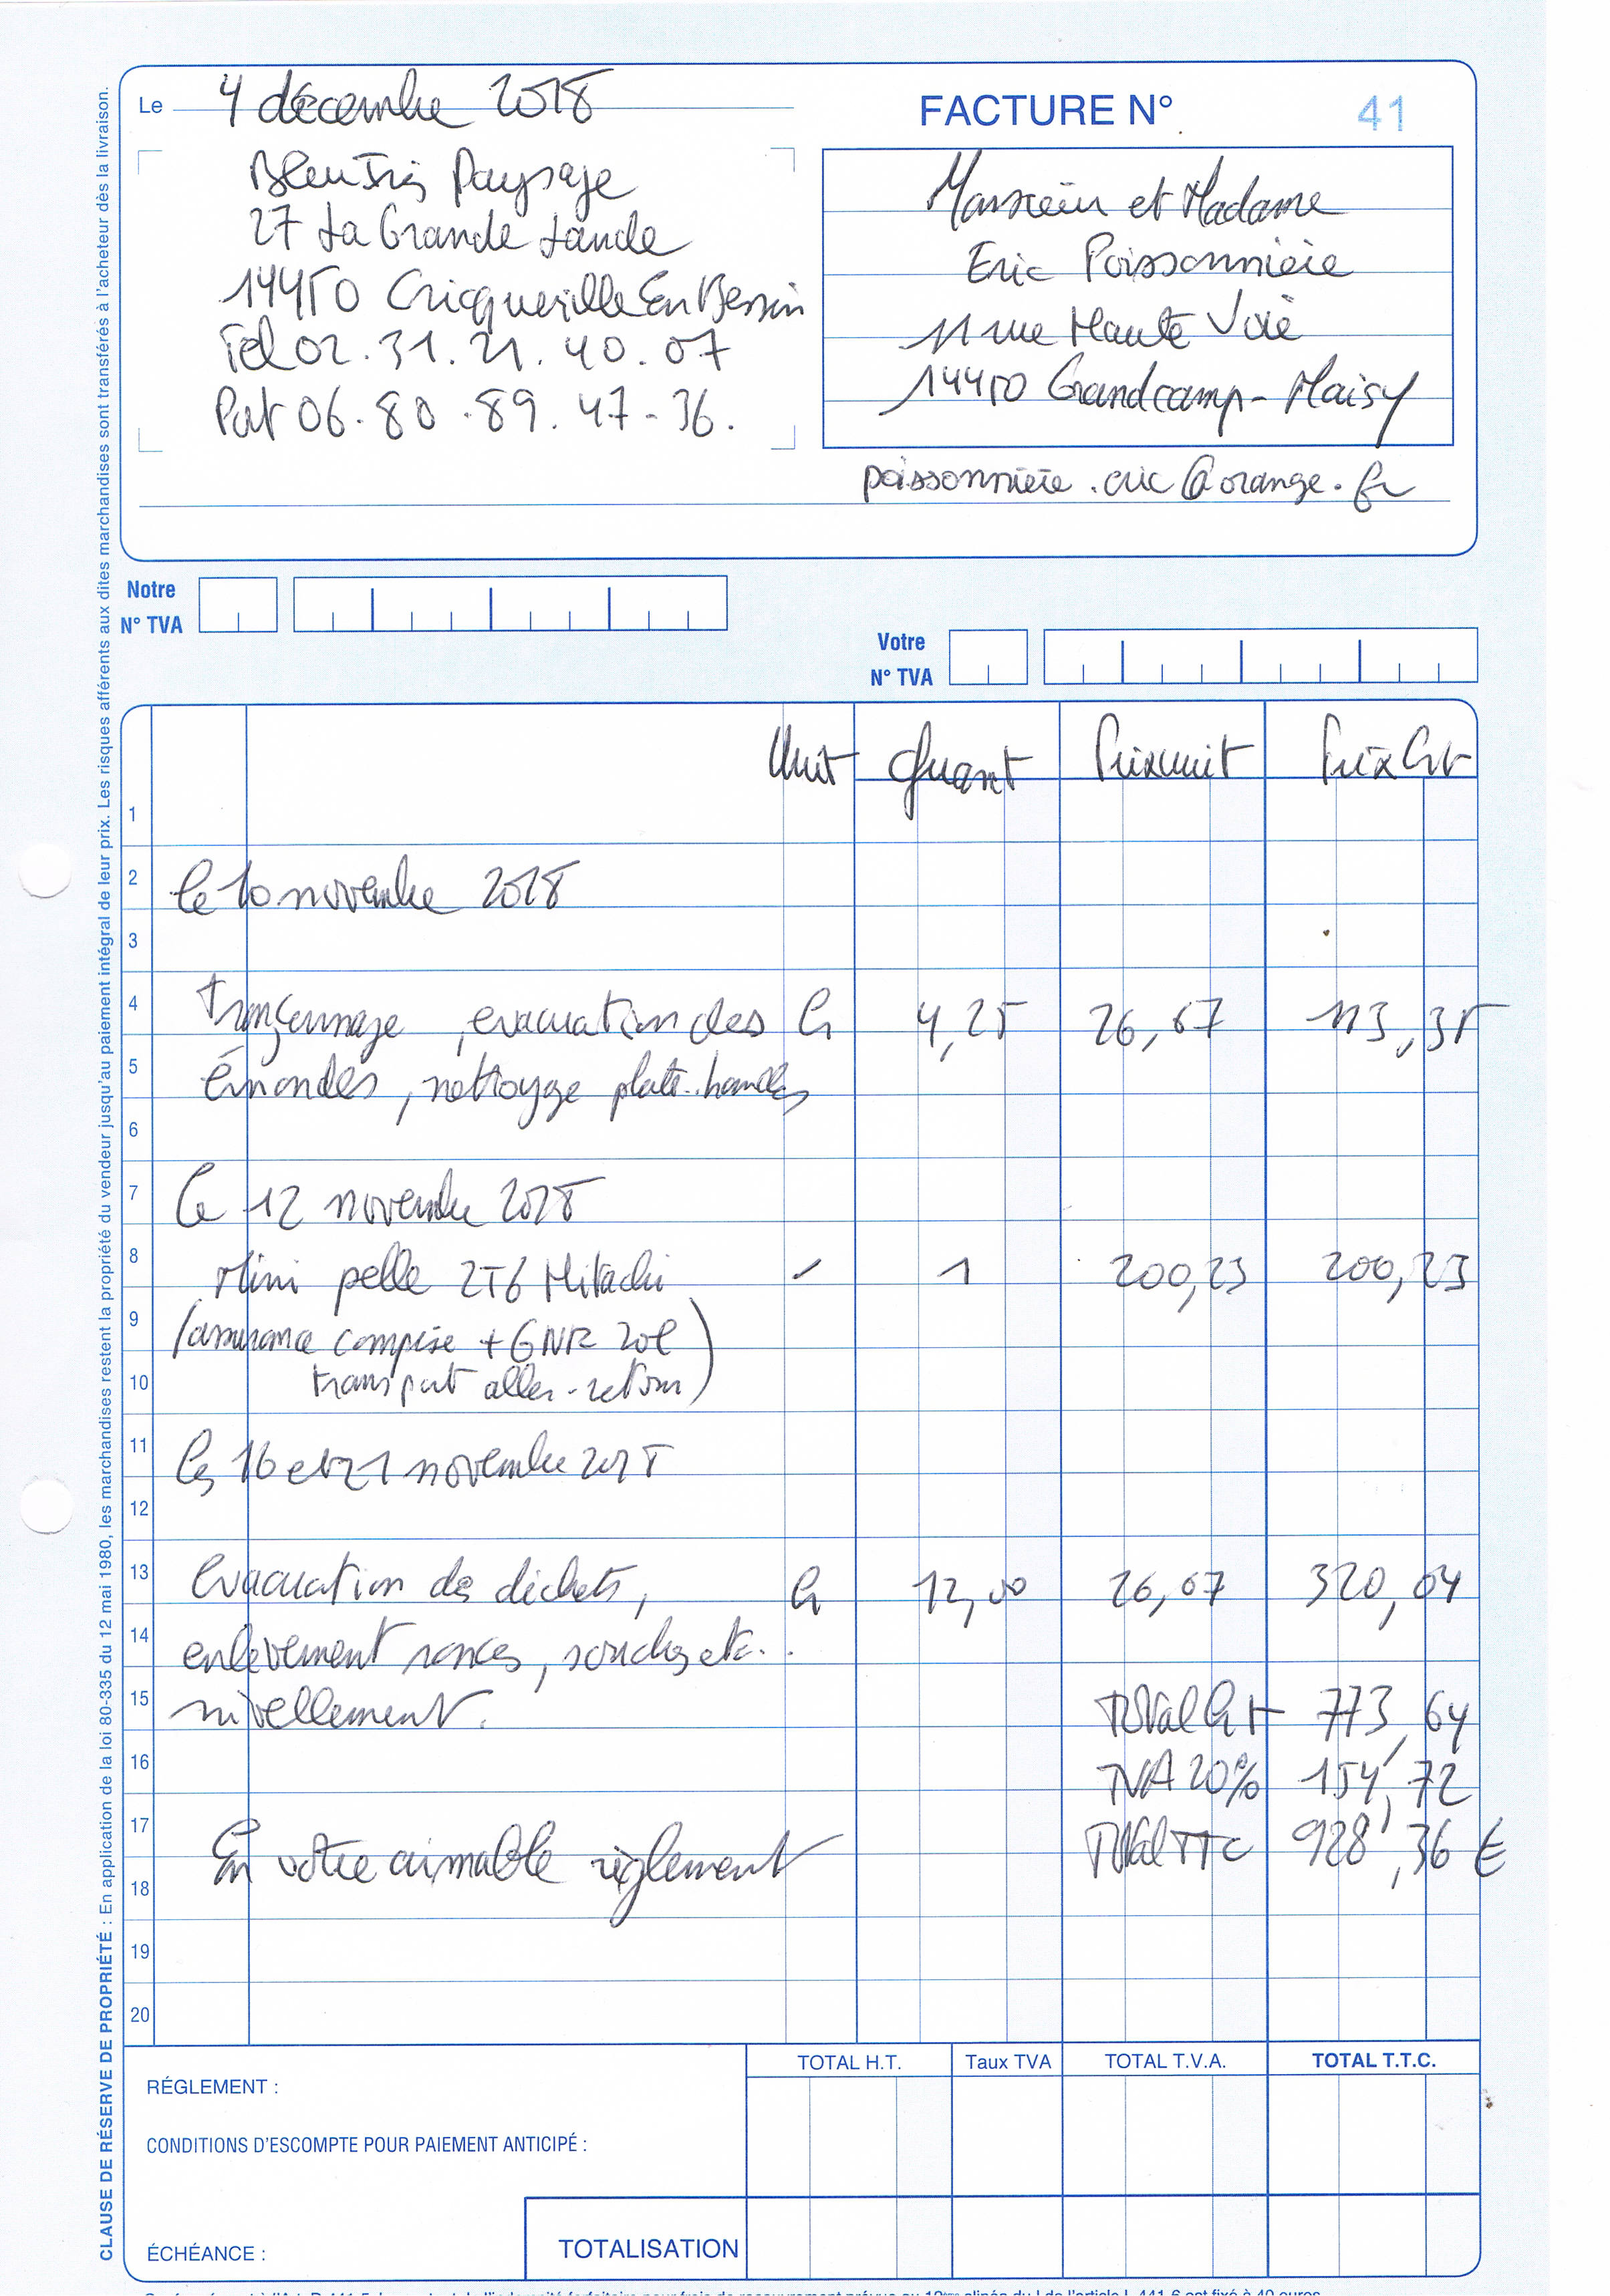 Le 4 décembre 2018
FACTURE N° 41
Bleu Iris Paysage
27 La Grande Lande
14450 Cricqueville En Bessin
Tel 02.31.21.40.07
Port 06.80.89.47-36.
Monsieur et Madame
Eric Poissonnière
11 rue Haute Voie
14450 Grandcamp-Maisy
poissonnière.eric@orange.fr
Notre
N° TVA
Votre
N° TVA
Unit Quant Prix unit Prix ht
1
2 le 10 novembre 2018
3
4 Tronçonnage, evacuation des h 4,25 26,67 113,35
5 émondes, nettoyage plate-bandes
6
7 Le 12 novembre 2018
8 Mini pelle 2T6 Hitachi - 1 200,23 200,23
9 (assurance comprise + GNR 20l
10 transport aller-retour)
11 les 16 et 21 novembre 2018
12
13 Evacuation des déchets, h 12,00 26,67 320,04
14 enlèvement ronces, souches etc..
15 nivellement. Total ht 773,64
16 TVA 20% 154,72
17 En votre aimable règlement Total TTC 928,36 €
18
19
20
TOTAL H.T. Taux TVA TOTAL T.V.A. TOTAL T.T.C.
RÉGLEMENT :
CONDITIONS D'ESCOMPTE POUR PAIEMENT ANTICIPÉ :
ÉCHÉANCE : TOTALISATION
CLAUSE DE RÉSERVE DE PROPRIÉTÉ : En application de la loi 80-335 du 12 mai 1980, les marchandises restent la propriété du vendeur jusqu'au paiement intégral de leur prix. Les risques afférents aux dites marchandises sont transférés à l'acheteur dès la livraison.